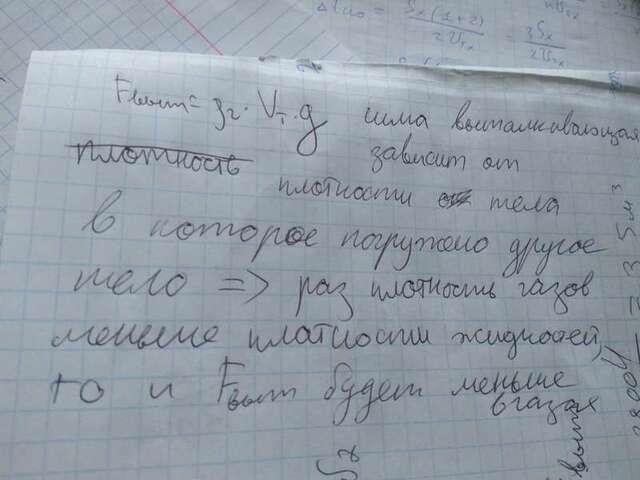 Δt₁₀ = Sₓ(x+2) / 2υₜₓ = 3Sₓ / 2υₜₓ
Fвыт = ρг · Vт · g сила выталкивающая
плотность зависит от
плотности тела
в которое погружено другое
тело => раз плотность газов
меньше платности жидкостей,
то и Fвыт будет меньше
в газах